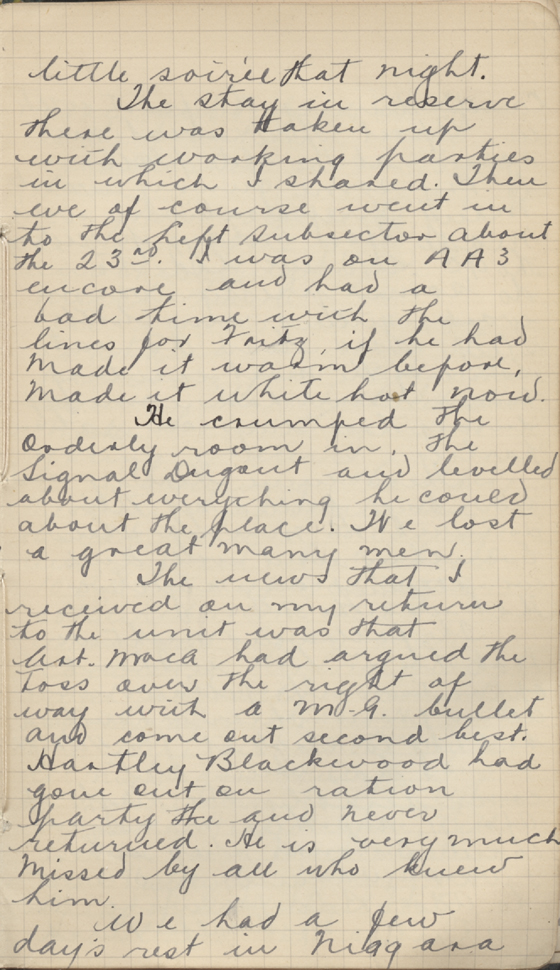 little soirée that night.
The stay in reserve
there was taken up
with working parties
in which I shared. Then
we of course went in
to the Left Subsector about
the 23rd. I was on AA3
encore and had a
bad time with the
lines for Fritz, if he had
made it warm before,
made it white hot now.
He crumped the
Orderly room in, the
Signal Dugout and levelled
about everything he could
about the place. We lost
a great many men.
The news that I
received on my return
to the unit was that
had argued the
toss over the right of
way with a M.G. bullet
and come out second best.
Hartley Blackwood had
gone out on ration
party the and never
returned. He is very much
missed by all who knew
him.
We had a few
day's rest in Niagara